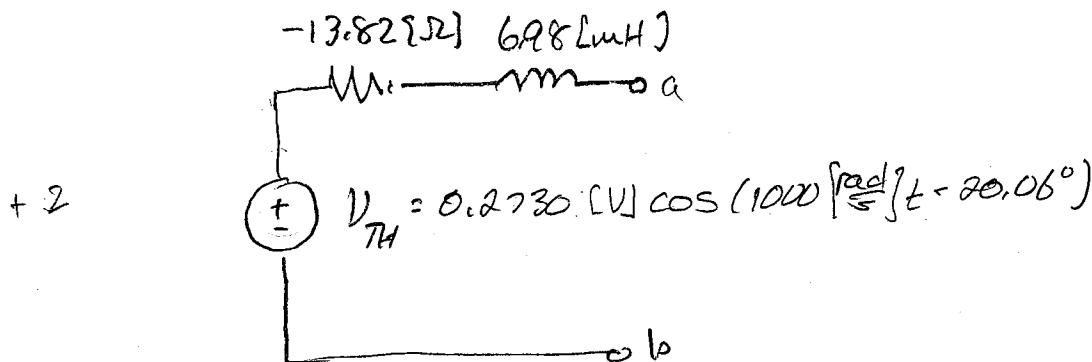 -13.82[Ω] 6.98[mH]
a
+ 2
+
-
V_TH = 0.2730 [V] cos (1000 [rad/s] t - 20.06°)
b